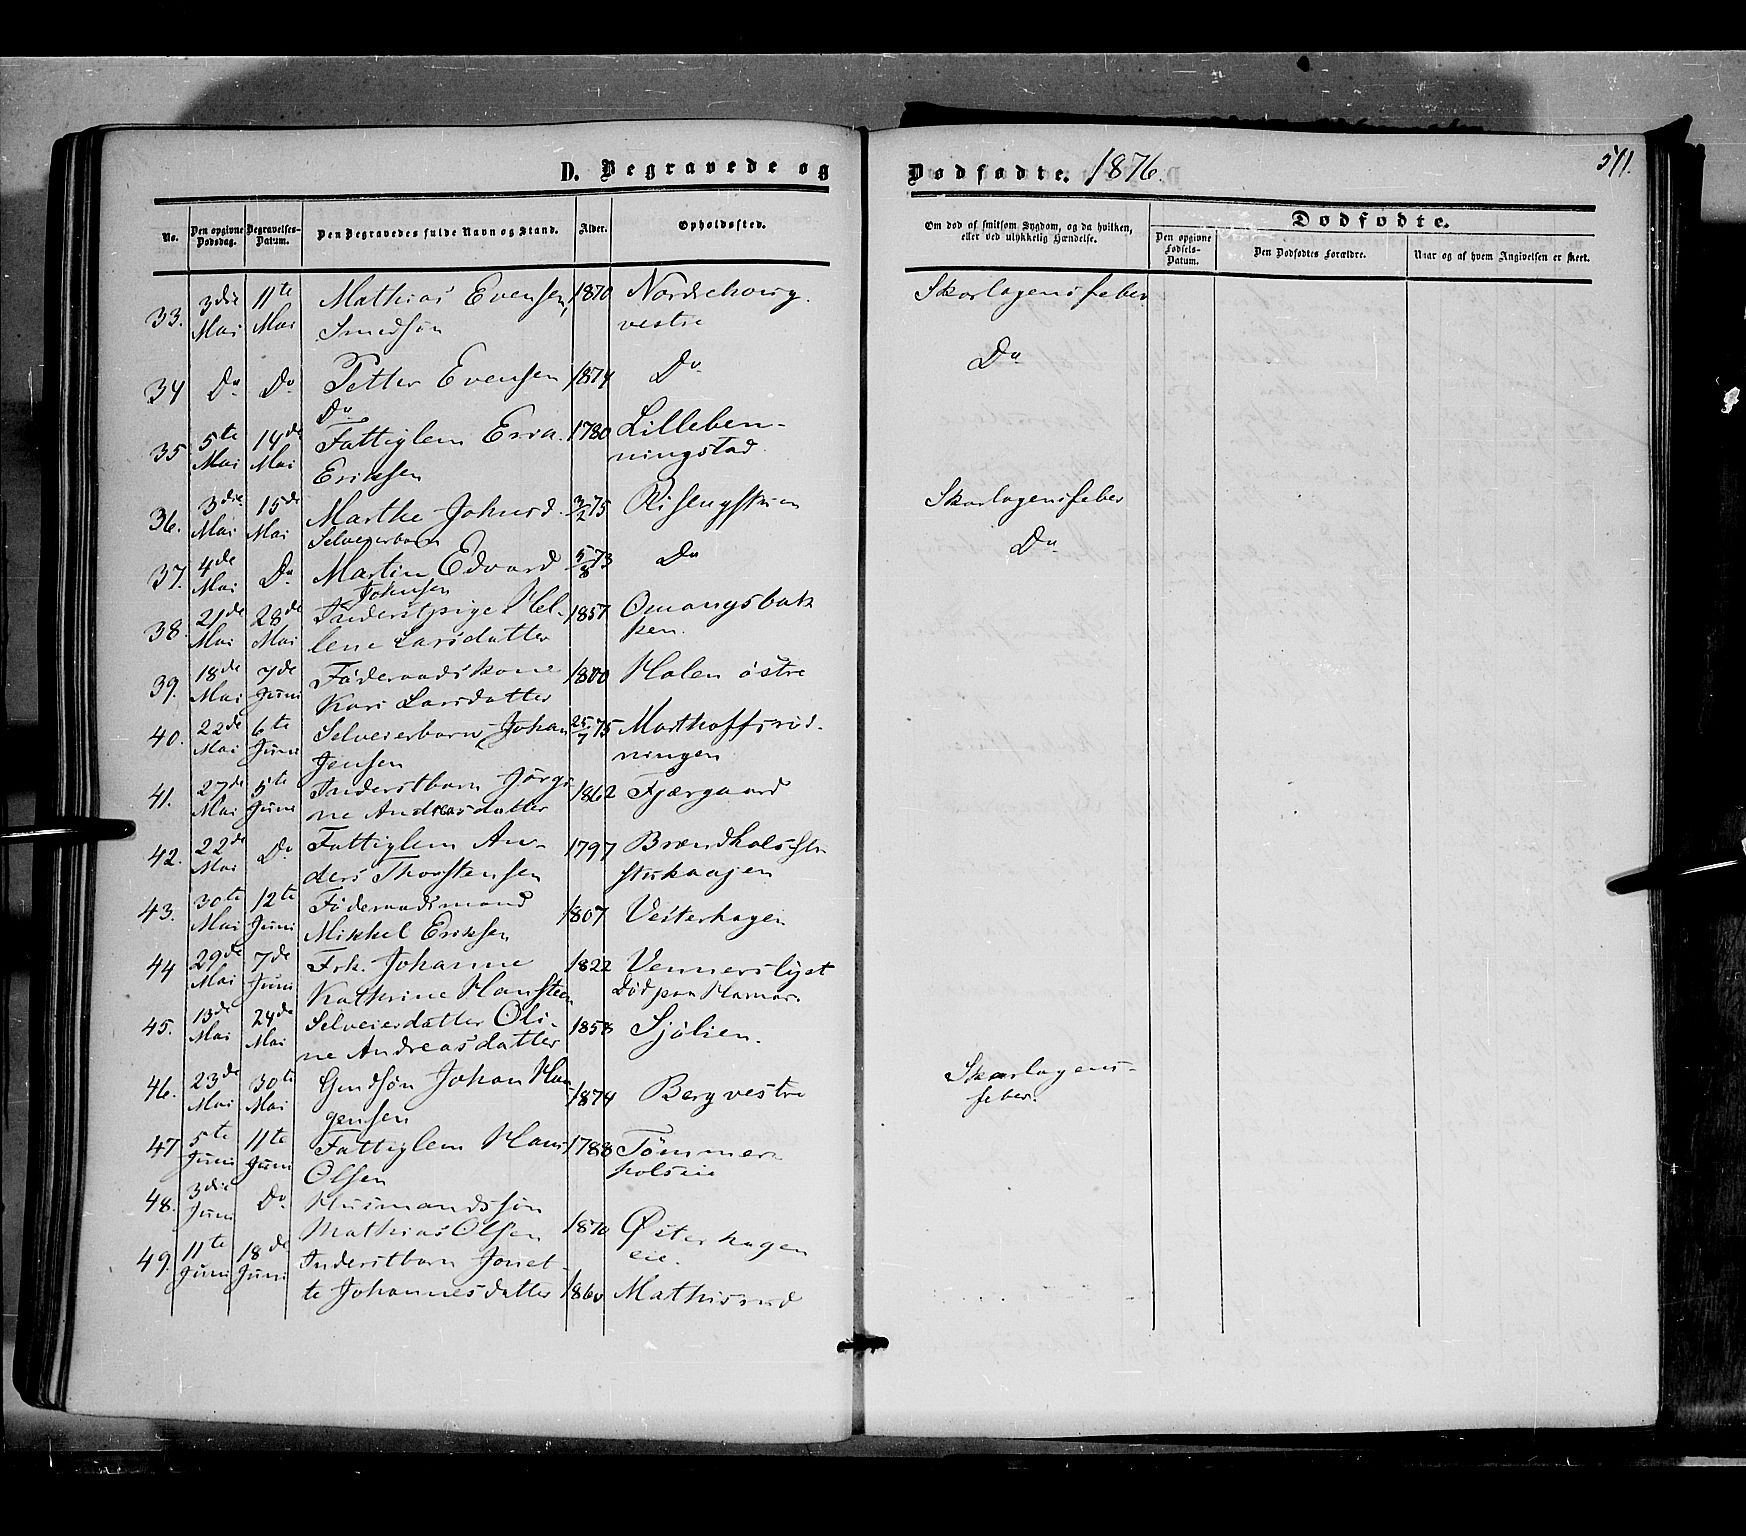 D. Begravede og
Dødfødte. 1876.
511.
No.
Den opgivne Dødsdag.
Begravelses-Datum.
Den Begravedes fulde Navn og Stand.
Alder.
Opholdssted.
Om død af smitsom Sygdom, og da hvilken,
eller ved ulykkelig Hændelse.
Dødfødte.
Den opgivne Fødsels-Datum.
Den Dødfødtes Forældre.
Naar og af hvem Angivelsen er skeet.
33. 3die Mai 11te Mai Mathias Evensen, 1870 Nordsehoug Skarlagensfeber
Smedsøn vestre
34 Do Do Petter Evensen 1874 Do Do
Do
35 5te Mai 14de Mai Fattiglem 1780 Lilleben-
Eriksen ningstad.
36. 3die Mai 15de Mai Marthe Johnsd. 3/2 75 Skarlagensfeber
Selveierbarn
37. 4de Mai Do Martin Edvard 5/8 73 Do Do
Johnsen
38. 21de Mai 28de Mai Inderstpige Hel- 1857 Omangsbak
lene Larsdatter ken.
39. 18de Mai 7de Juni Föderaadskone 1800 Holen östre
Kari Larsdatter
40. 22de Mai 6te Juni Selveierbarn Johan 25/7 75
Jensen ningen
41. 27de Mai 5te Juni Inderstbarn Jørgi 1862 Fjærgaard
ne Andreasdatter
42. 22de Mai Do Fattiglem An- 1797
ders Thorstensen
43. 30te Mai 12te Juni Föderaadsmand 1807 Vesterhagen
Mikkel Eriksen
44 29de Mai 7de Juni Frk. Johanne 1822 Vennerslyst
Kathrine Hansteen Död paa Hamar.
45. 13de Mai 24de Mai Selveierdatter Oli- 1858 Sjölien.
ne Andreasdatter
46. 23de Mai 30te Mai Johan Ha 1874 Berg vestre Skarlagens-
gensen feber.
47 5te Juni 11te Juni Fattiglem Hans 1788 Tömmer-
Olsen holseie
48. 3die Juni Do Husmandssøn
Mathias Olsen 1870 Østerhagen
49. 11te Juni 18de Juni Inderstbarn Jonet- eie.
te Johannesdatter 1860 Mathisrud